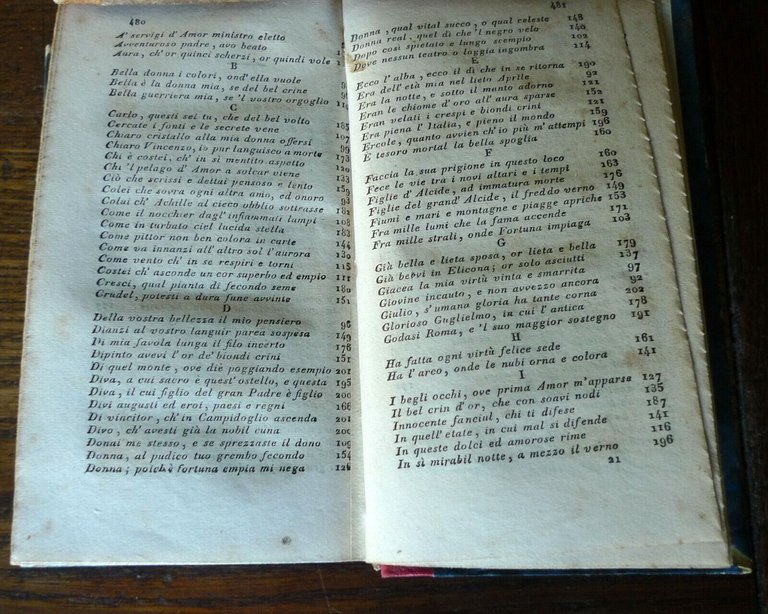 480
A' servigi d'Amor ministro eletto
Avventuroso padre, avo beato
Aura, ch'or quinci scherzi, or quindi vole
B
Bella donna i colori, ond'ella vuole
Bella è la donna mia, se del bel crine
Bella guerriera mia, se 'l vostro orgoglio
C
Carlo, questi sei tu, che del bel volto 185
Cercate i fonti e le secrete vene 107
Chiaro cristallo alla mia donna offersi
Chiaro Vincenzo, io pur languisco a morte
Chi è costei, ch'in sì mentito aspetto
Chi 'l pelago d'Amor a solcar viene
Ciò che scrissi e dettai pensoso e lento
Colei che sovra ogni altra amo, ed onoro
Colui ch'Achille al cieco obblio sottrasse
Come il nocchier dagl'infiammati lampi
Come in turbato ciel lucida stella 183
Come pittor non ben colora in carte 144
Come va innanzi all'altro sol l'aurora
Come vento ch'in se respiri e torni
Costei ch'asconde un cor superbo ed empio
Cresci, qual pianta di fecondo seme 180
Crudel, potesti a dura fune avvinte
D
Della vostra bellezza il mio pensiero
Dianzi al vostro languir parea sospesa 149
Di mia favola lunga il filo incerto 176
Dipinto avevi l'or de' biondi crini 151
Di quel monte, ove diè poggiando esempio 201
Diva, a cui sacro e quest'ostello, e questa 195
Diva, il cui figlio del gran Padre è figlio 200
Divi augusti ed eroi, paesi e regni 166
Di vincitor, ch'in Campidoglio ascenda 201
Divo, ch'avesti già la nobil cuna 200
Donai me stesso, e se sprezzaste il dono 109
Donna, al pudico tuo grembo fecondo 154
Donna; poichè fortuna empia mi nega
481
Donna, qual vital succo, o qual celeste 148
Donna real, quel dì che 'l negro velo 140
Dopo così spietato e lungo scempio 102
Dove nessun teatro o loggia ingombra 114
E
Ecco l'alba, ecco il dì che in se ritorna 190
Era dell'età mia nel lieto Aprile 92
Era la notte, e sotto il manto adorno 121
Eran le chiome d'oro all'aura sparse 152
Eran velati i crespi e biondi crini 121
Era piena l'Italia, e pieno il mondo 159
Ercole, quanto avvien ch'io più m'attempi 196
È tesoro mortal la bella spoglia 160
F
Faccia la sua prigione in questo loco 160
Fece le vie tra i novi altari e i tempi 163
Figlie d'Alcide, ad immatura morte 176
Figlie del grand'Alcide, il freddo verno 149
Fiumi e mari e montagne e piagge apriche 153
Fra mille lumi che la fama accende 171
Fra mille strali, onde Fortuna impiaga 103
G
Già bella e lieta sposa, or lieta e bella 179
Già bebvi in Elicona; or solo asciutti 137
Giacea la mia virtù vinta e smarrita 97
Giovine incauto, e non avvezzo ancora 92
Giulio, s'umana gloria ha tante corna 202
Glorioso Guglielmo, in cui l'antica 178
Godasi Roma, e 'l suo maggior sostegno 191
H
Ha fatta ogni virtù felice sede 161
Ha l'arco, onde le nubi orna e colora 141
I
I begli occhi, ove prima Amor m'apparse 127
Il bel crin d'or, che con soavi nodi 135
Innocente fanciul, chi ti difese 187
In quell'etate, in cui mal si difende 141
In queste dolci ed amorose rime 116
In sì mirabil notte, a mezzo il verno 196
21